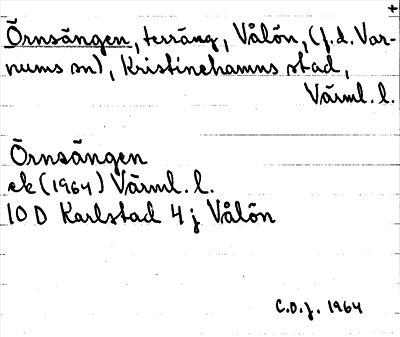 Örnsängen, terräng, Vålön, (f.d. Var-
nums sn), Kristinehamns stad,
Värml. l.
Örnsängen
ek (1964) Värml. l.
10 D Karlstad 4 j Vålön
C.O.J. 1964